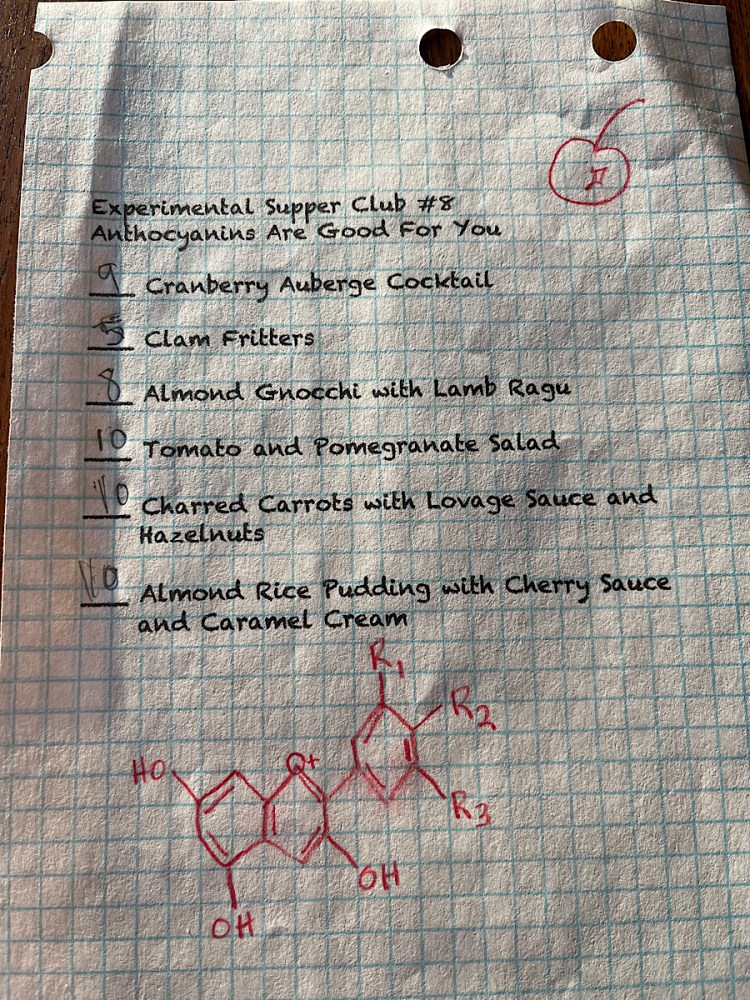 Experimental Supper Club #8
Anthocyanins Are Good For You
9 Cranberry Auberge Cocktail
Clam Fritters
8 Almond Gnocchi with Lamb Ragu
10 Tomato and Pomegranate Salad
10 Charred Carrots with Lovage Sauce and
Hazelnuts
10 Almond Rice Pudding with Cherry Sauce
and Caramel Cream
R1
R2
HO
O+
R3
OH
OH